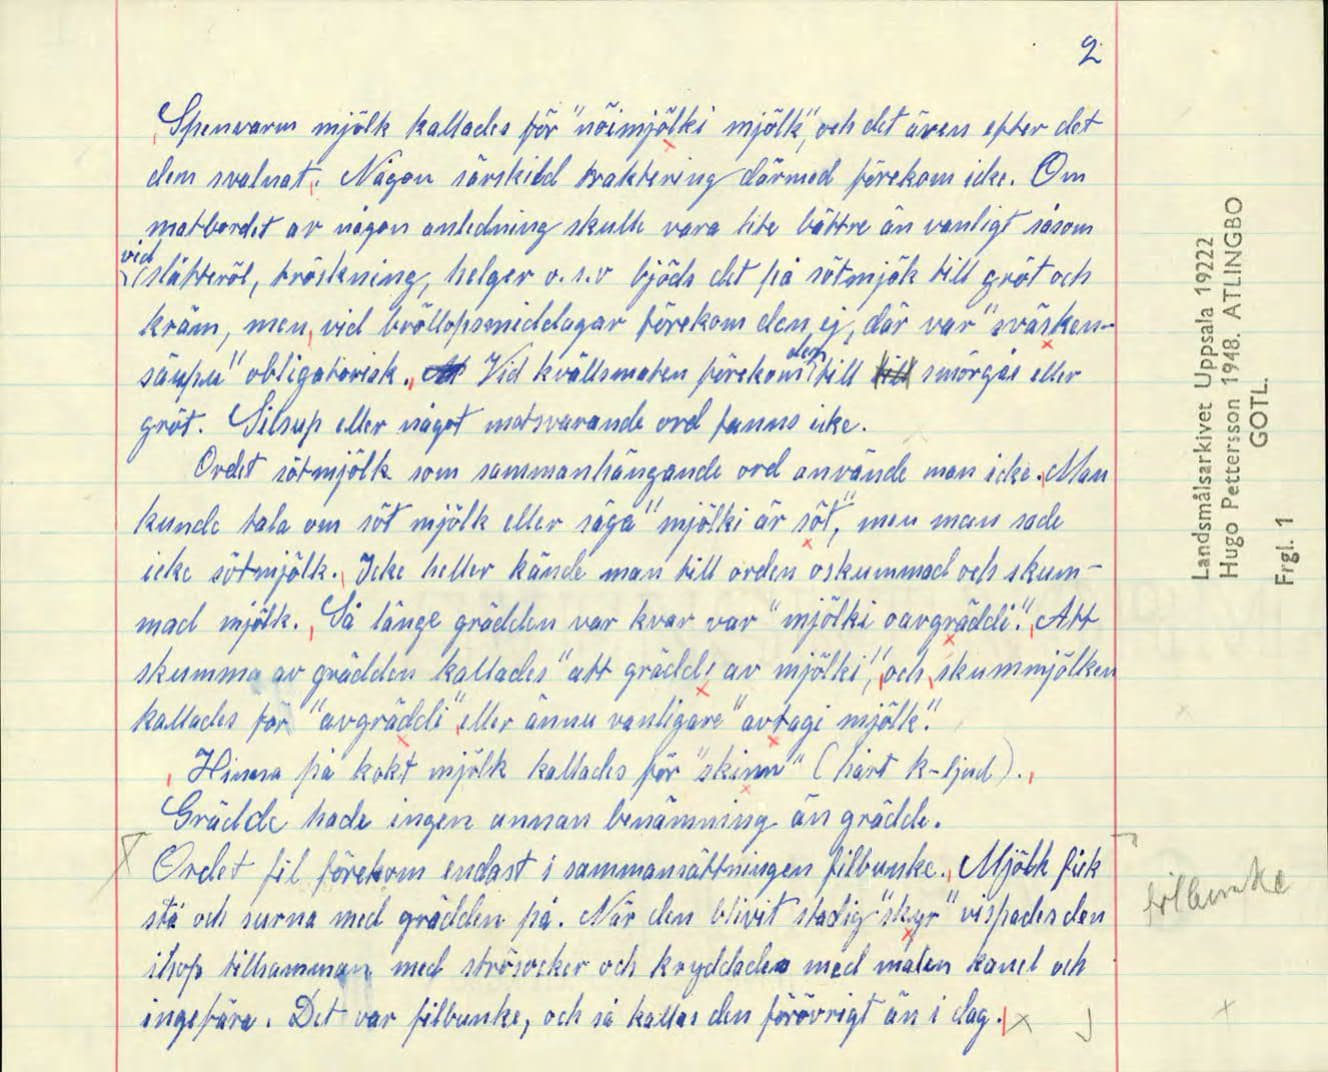 2
Spenvarm mjölk kallades för "nöimjölki mjölk", och det även efter det
den svalnat. Någon särskild traktering därmed förekom icke. Om
matbordet av någon anledning skulle vara lite bättre än vanligt såsom
vid slåtteröl, tröskning, helger o.s.v bjöds det på sötmjök till gröt och
kräm, men vid bröllopsmiddagar förekom den ej, där var "svåsken-
säupu" obligatorisk. Vid kvällsmaten förekom den till till smörgås eller
gröt. Silsup eller något motsvarande ord fanns icke.
Ordet sötmjölk som sammanhängande ord använde man icke. Man
kunde tala om söt mjölk eller säga "mjölki är söt", men man sade
icke sötmjölk. Icke heller kände man till orden oskummad och skum-
mad mjölk. Så länge grädden var kvar var "mjölki oavgräddi". Att
skumma av grädden kallades "att gräddi av mjölki", och skummjölken
kallades för "avgräddi" eller ännu vanligare "avtagi mjölk".
Hinna på kokt mjölk kallades för "skinn" (hårt k-ljud).
Grädde hade ingen annan benämning än grädde.
Ordet fil förekom endast i sammansättningen filbunke. Mjölk fick
stå och surna med grädden på. När den blivit stadig "skyr" vispades den
ihop tillsamman med strösocker och kryddades med malen kanel och
ingefära. Det var filbunke, och så kallas den förövrigt än i dag.
filbunke
Landsmålsarkivet Uppsala 19222
Hugo Pettersson 1948. ATLINGBO
GOTL.
Frgl. 1